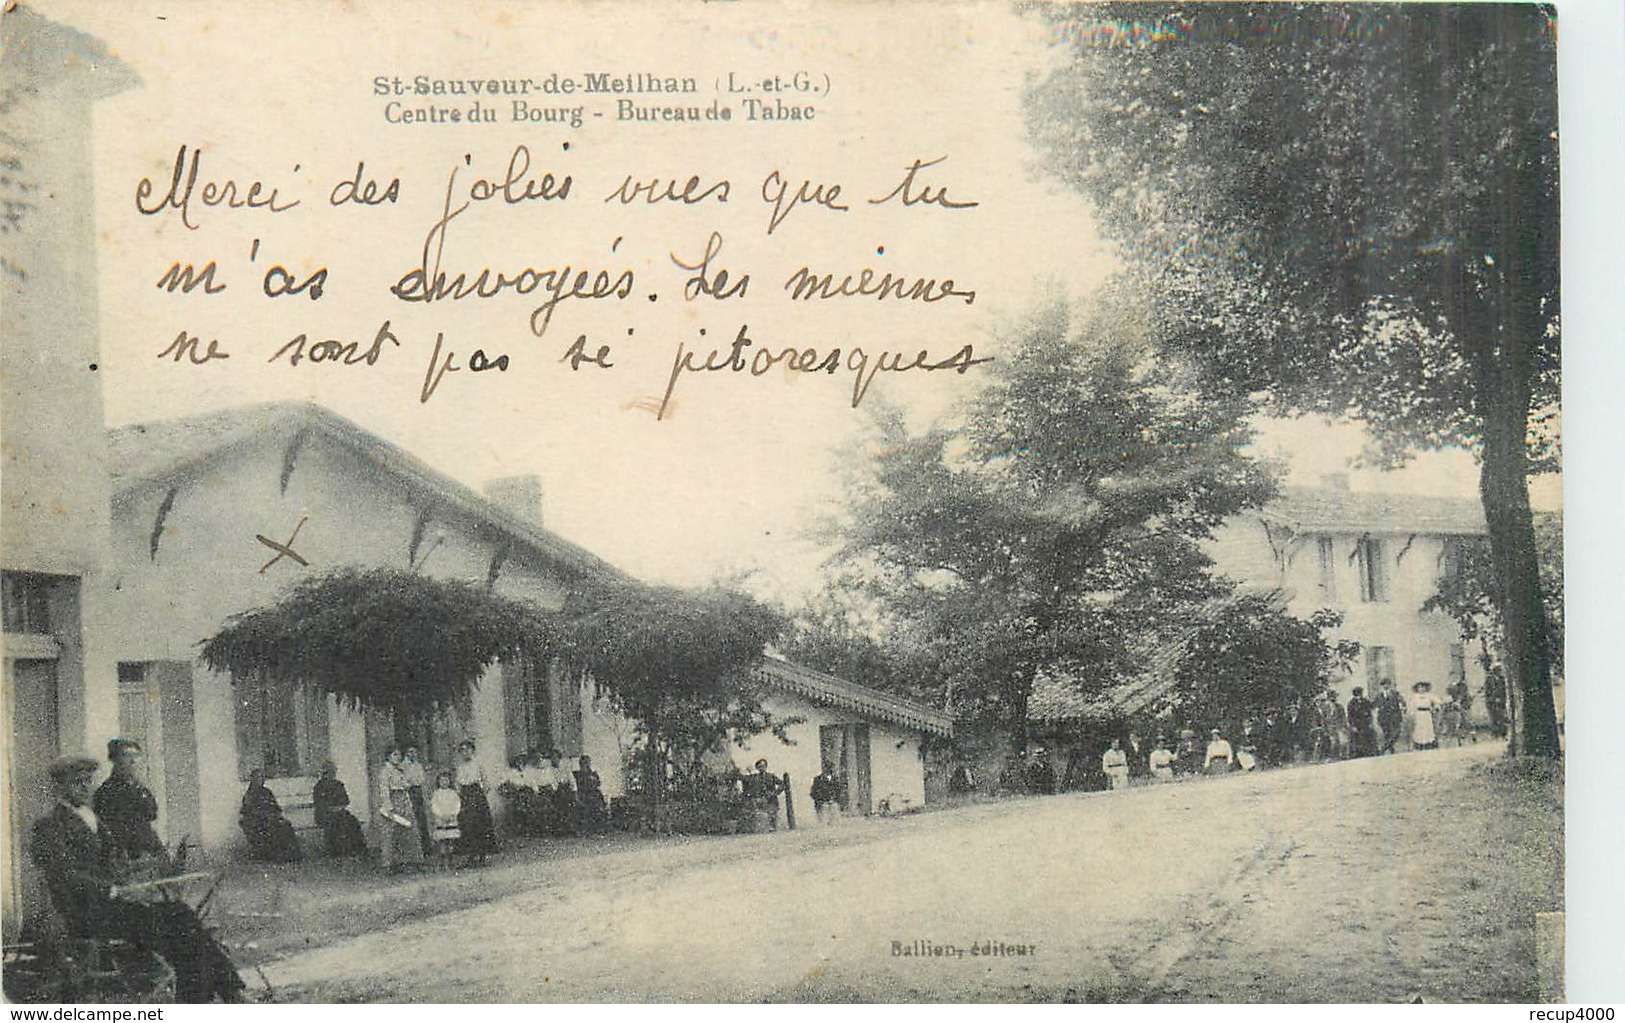 St-Sauveur-de-Meilhan (L.-et-G.)
Centre du Bourg - Bureau de Tabac
Merci des jolies vues que tu
m'as envoyées. Les miennes
ne sont pas si pitoresques
Ballion, éditeur
delcampe.net
recup4000